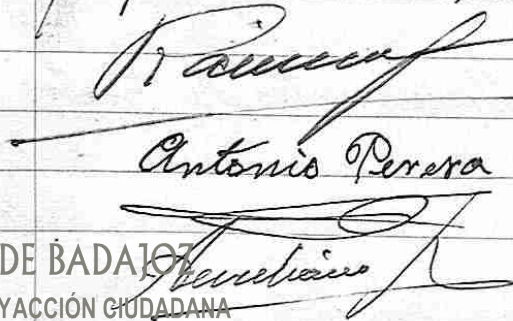 Antonio Perera
DE BADAJOZ
Aureliano
YACCIÓN CIUDADANA